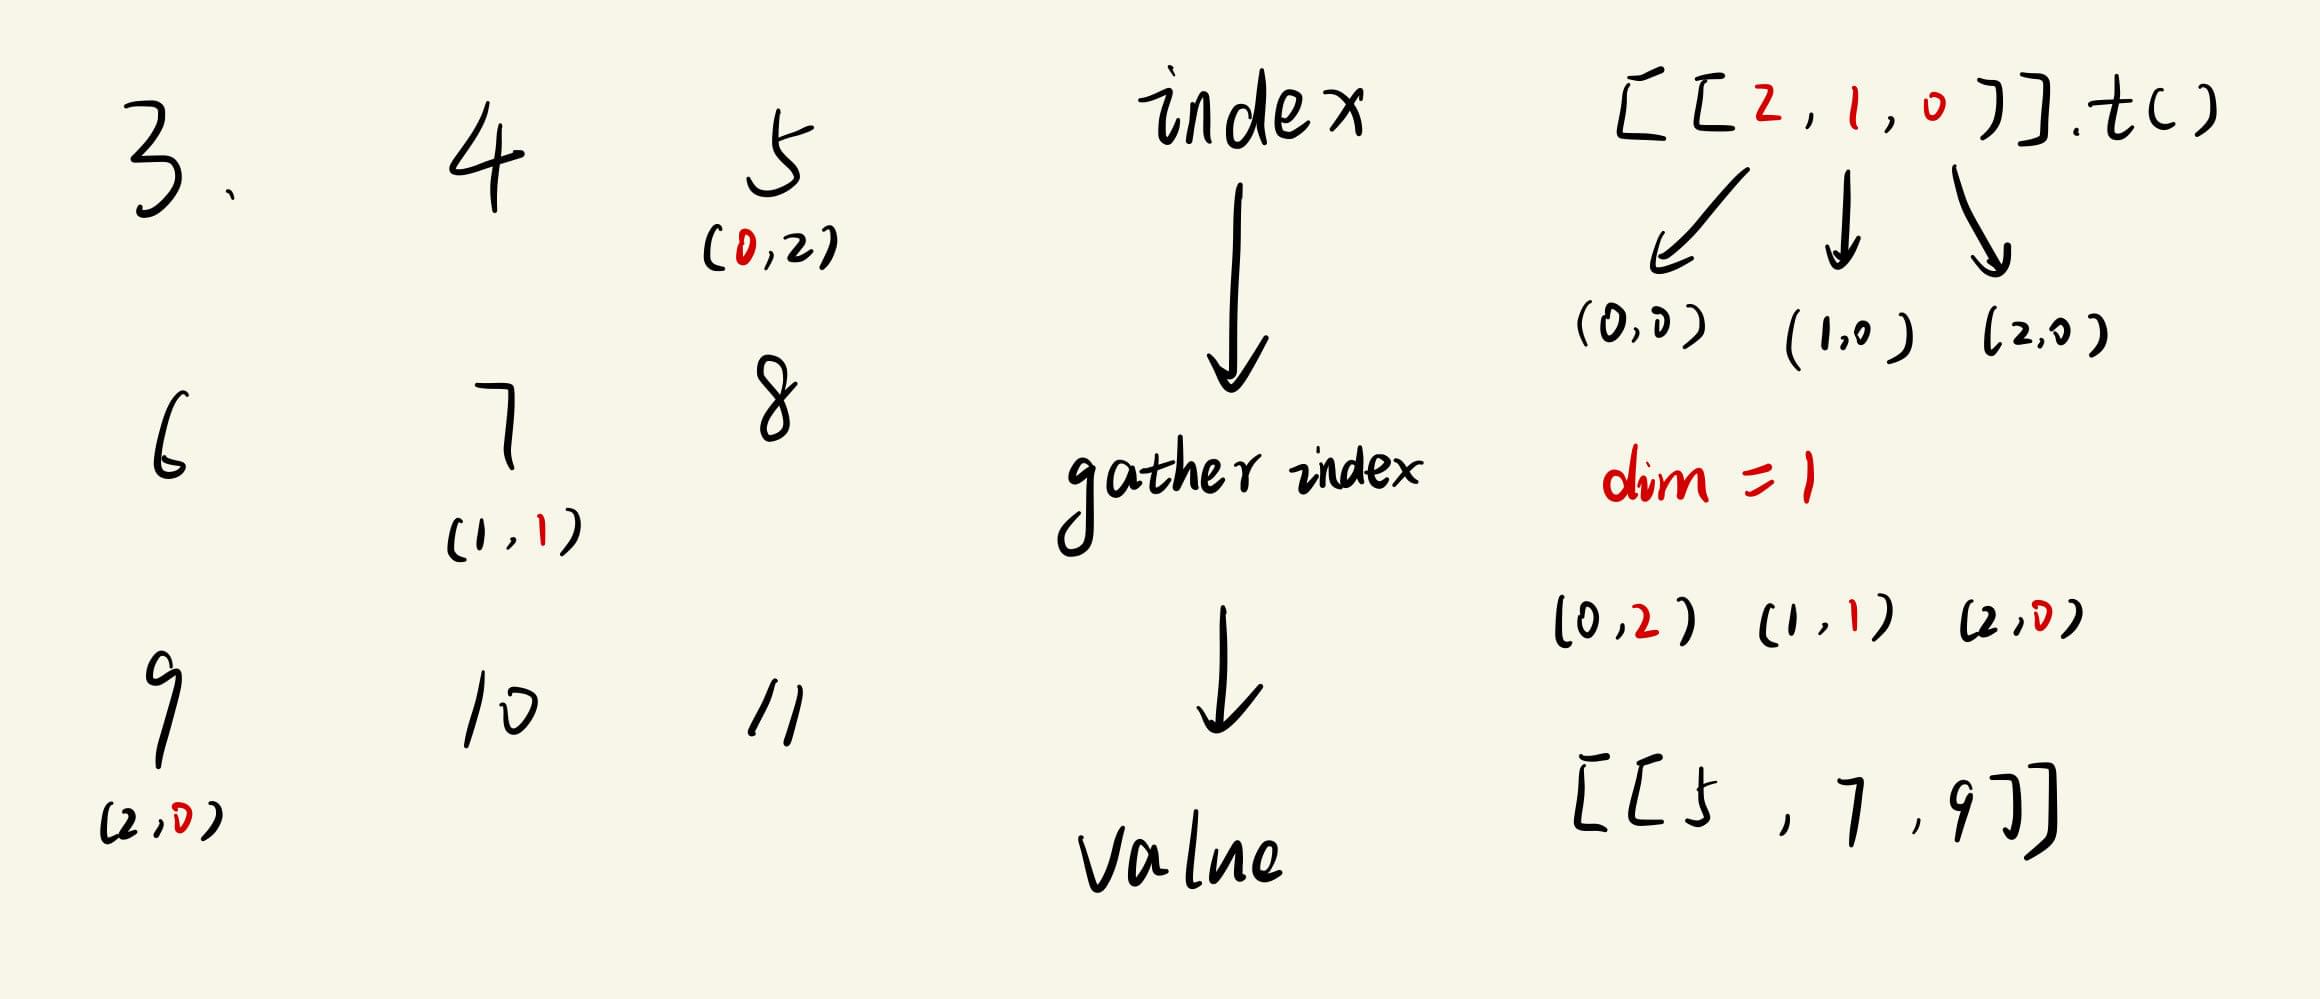 3. 4 5
(0,2)
6 7 8
(1,1)
9 10 11
(2,0)
index
gather index
value
[[2,1,0]].t()
(0,0) (1,0) (2,0)
dim = 1
(0,2) (1,1) (2,0)
[[5,7,9]]